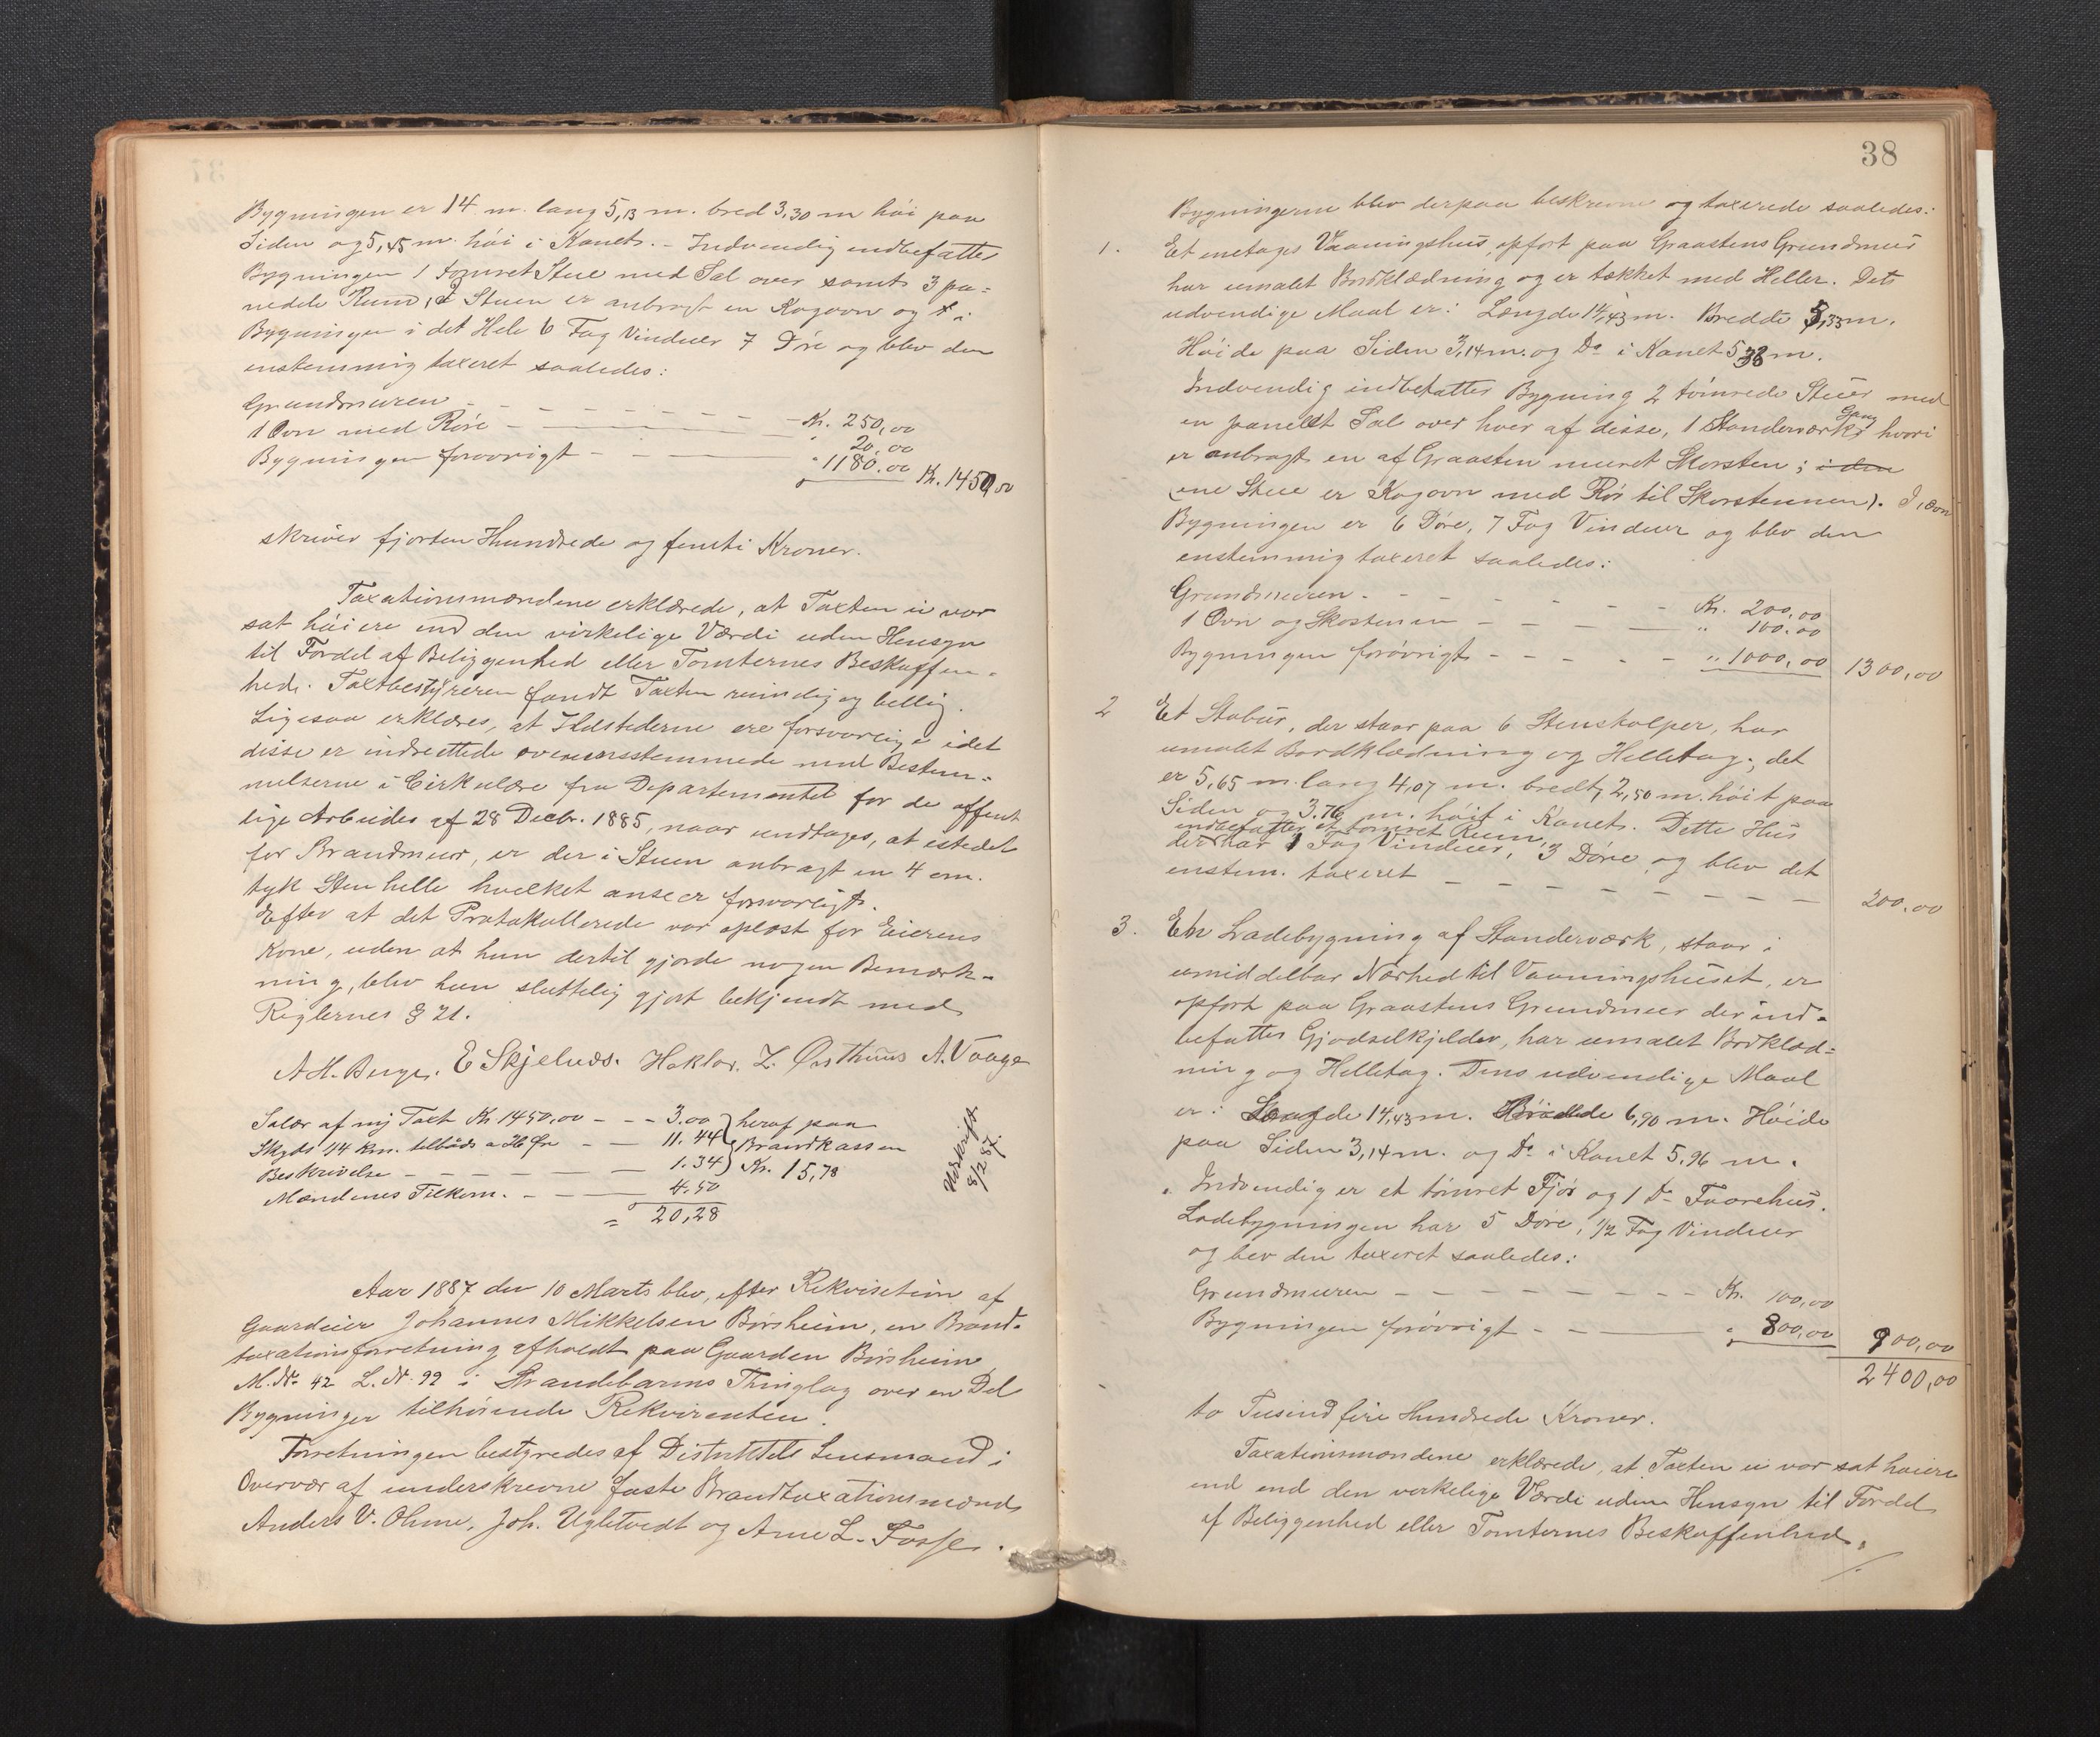 Bygningen er 14 m. lang 5,13 m. bred 3,30 m høi paa
Siden og 5,45 m. høi i Kanet. - Indvendig indbefatter
Bygningen 1 tømret Stue med Sal over samt 3 pa=
nelede Rum, I Stuen er anbragt en Kogovn og i
Bygningen i det Hele 6 Fag Vinduer 7 Døre og blev den
enstemmig taxeret saaledes:
Grundmuren - - - - - - Kr. 250,00
1 Ovn med Röir - - - " 20,00
Bygningen forøvrigt - - - " 1180.00 Kr. 1450,00
skriver fjorten Hundrede og femti Kroner.
Taxationsmændene erklærede, at Taxten ei var
sat høiere end den virkelige Værdi uden Hensyn
til Fordel af Beliggenhed eller Tomternes Beskaffen=
hed. Taxtbestÿreren fandt Taxten rimelig og billig.
Ligesaa erklæres, at Ildstederne ere forsvarlige idet
disse er indrettede overensstemmede med Bestem=
melserne i Cirkulære fra Departementet for de offent
lige Arbeider af 28 Decbr. 1885, naar undtages, at istedet
for Brandmur, er der i Stuen anbragt en 4 cm.
tyk Sten helle hvilket ansees forsvarligt.
Efter at det Protokollerede var oplæst for Eierens
Kone, uden at hun dertil gjorde nogen Bemærk=
ning, blev hun sluttelig gjort bekjendt med
Reglernes § 21.
A H. Berge. E Skjelnæs. Haktor. L. Østhuus A. Vaage
Salær af ny Taxt Kr. 1450,00 - - - 3.00 heraf paa
Skyds 44 km. tilbaads a 26 Øre - - 11.44 Brandkassen
Beskrivelse - - - - 1.34 Kr. 15,78
Mændenes Tilkom. - - 4.50
= 20,28
Udskrift
8/2 87.
Aar 1887 den 10 Marts blev, efter Rekvisition af
Gaardeier Johannes Mikkelsen Børsheim, en Brand=
taxationsforretning afholdt paa Gaarden Børsheim
M. No. 42 L. No. 99 i Strandebarms Thinglag over en Del
Bygninger tilhørende Rekvirenten.
Forretningen bestyredes af Distriktets Lensmand i
Overvær af underskrevne faste Brandtaxationsmænd
Anders V. Ohme, Joh. Ugletvedt og Arne L. Fosse.
38
Bygningerne blev derpaa beskrevne og taxerede saaledes:
1. Et enetages Vaaningshus, opfort paa Graastens Grundmur
har umalet Bordklædning og er tækket med Heller. Dets
udvendige Maal er: Længde 14,43 m. Bredde 5,33 m.
Høide paa Siden 3,14 m. og Do i Kanet 5,38 m.
Indvendig indbefatter Bygning 2 tömrede Stuer med
en panelet Sal over hver af disse, 1 Standerværks Gang hvori
er anbragt en af Graasten muret Skorsten; i den
(ene Stue er Kogovn med Rör til Skorstenen). I
Bygningen er 6 Døre, 7 Fag Vinduer og blev den
enstemmig taxeret saaledes:
Grundmuren - - - - - Kr. 200,00
1 Ovn og Skostenen - - - " 100.00
Bygningen forøvrigt - - - " 1000,00 1300,00
2 Et Stabur, der staar paa 6 Stenstolper, har
umalet Bordklædning og Helletag; det
er 5,65 m. lang 4,07 m. bredt, 2,50 m. høit paa
Siden og 3.76 m. høit i Kanet. Dette Hus
indbefatter et tømret Rum,
der har 1 Fag Vinduer, 3 Døre, og blev det
enstem. taxeret - - - - - - 200,00
3. En Ladebygning af Standerværk, staar i
umiddelbar Nærhed til Vaaningshuset, er
opfort paa Graastens Grundmur der ind=
befatter Gjødselkjelder, har umalet Bordklæd=
ning og Helletag. Dens udvendige Maal
er: Længde 14,43 m. Bredde 6,90 m. Høide
paa Siden 3,14 m. og Do i Kanet 5,96 m.
Indvendig er et tömret Fjøs og 1 Do Faarehus.
Ladebygningen har 5 Døre, 1/2 Fag Vinduer
og blev den taxeret saaledes:
Grundmuren - - - - - - Kr. 100,00
Bygningen forøvrigt - - - " 800,00 900,00
2400,00
to Tusind fire Hundrede Kroner.
Taxationsmændene erklærede, at Taxten ei var sat høiere
end end den verkelige Værdi uden Hensyn til Fordel
af Beliggenhed eller Tomternes Beskaffenhed.